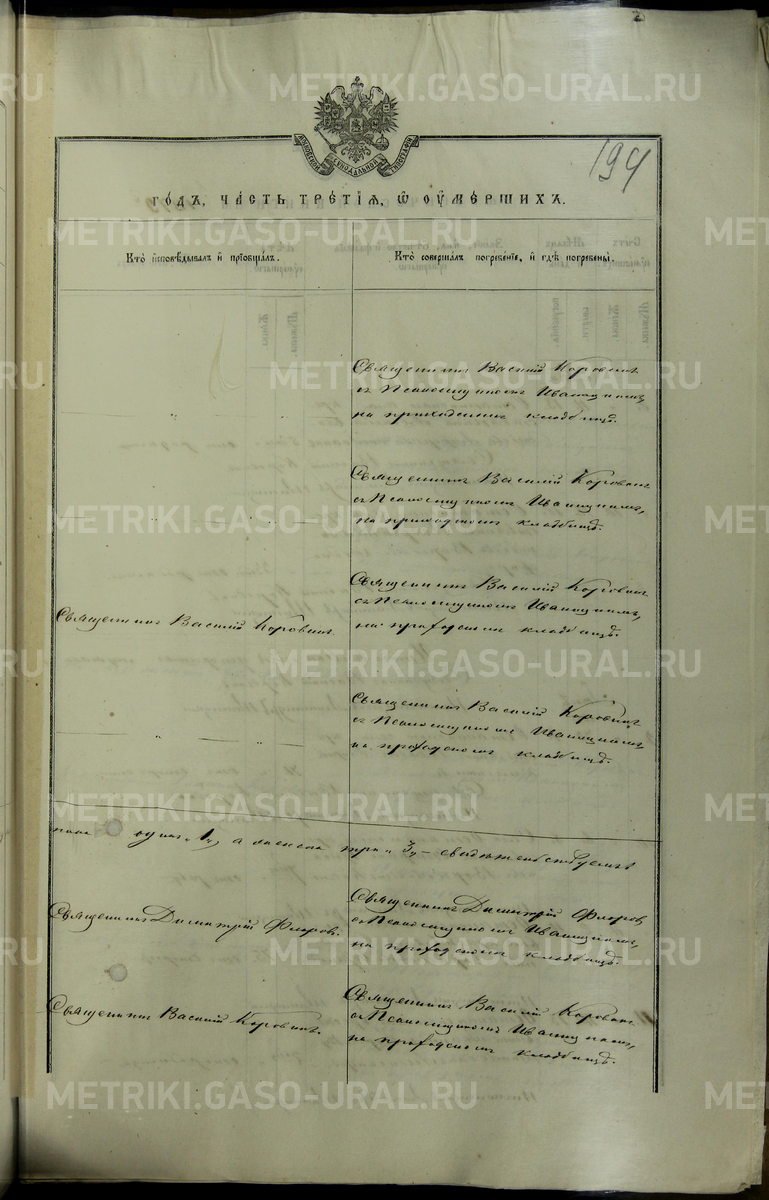 194
МОСКОВСКОЙ СѴНОДАЛЬНОЙ ТИПОГРАФІИ
ГО́ДЪ, ЧА́СТЬ ТРЕ́ТІѦ, Ѡ ОУМЕ́РШИХЪ.
Кто̀ и҆сповѣ́дывалъ и҆ прїѡбща́лъ.
Кто̀ соверша́лъ погребе́нїе, и҆ гдѣ̀ погребены̀.
Священникъ Василій Коровинъ
съ Псаломщикомъ Иваницкимъ,
на приходскомъ кладбищѣ.
Священникъ Василій Коровинъ
съ Псаломщикомъ Иваницкимъ,
на приходскомъ кладбищѣ.
Священникъ Василій Коровинъ.
Священникъ Василій Коровинъ
съ Псаломщикомъ Иваницкимъ,
на приходскомъ кладбищѣ.
Священникъ Василій Коровинъ
съ Псаломщикомъ Иваницкимъ,
на приходскомъ кладбищѣ.
одинъ „1„ а женска три „3„ – свидѣтельствуемъ
Священникъ Димитрій Флоровъ.
Священникъ Димитрій Флоровъ
съ Псаломщикомъ Иваницкимъ,
на приходскомъ кладбищѣ.
Священникъ Василій Коровинъ.
Священникъ Василій Коровинъ
съ Псаломщикомъ Иваницкимъ,
на приходскомъ кладбищѣ.
METRIKI.GASO-URAL.RU